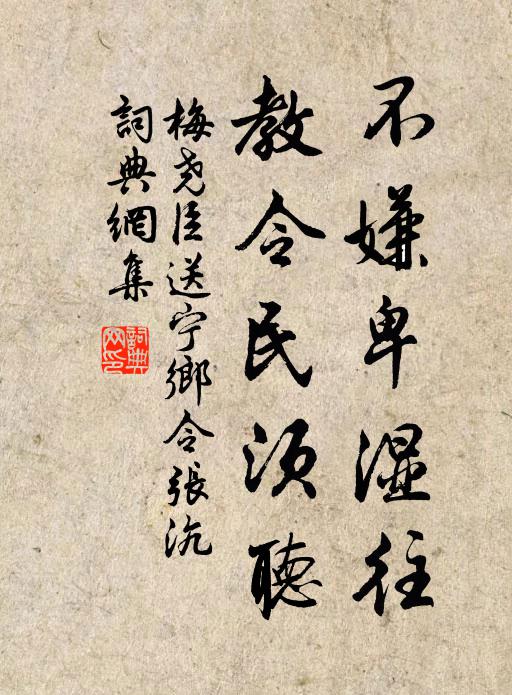 不嫌卑湿往
教令民须聽
梅尧臣送宁鄉令張沆
詞典網集
詞典網印